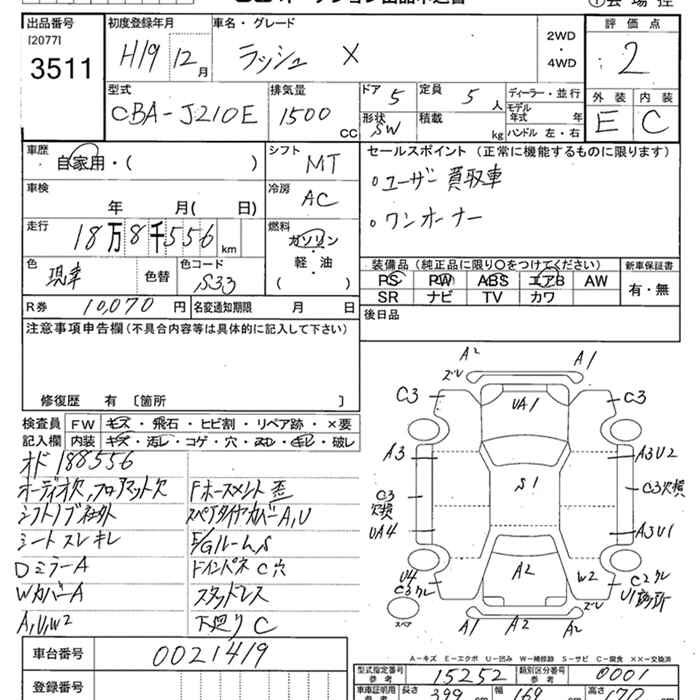 出品番号 初度登録年月 車名・グレード 評価点
[2077]
3511 H19 12月 ラッシュ X 2WD・4WD 2
外装 内装
E C
型式 排気量 ドア 定員 ディーラー・並行
CBA-J210E 1500 CC 5 5人
形状 積載 モデル年式 年
SW kg ハンドル 左・右
車歴 シフト セールスポイント(正常に機能するものに限ります)
自家用・( ) MT 。ユーザー買取車
車検 冷房
年 月( 日) AC 。ワンオーナー
走行 燃料
18万8千556km ガソリン
軽・油
( )
色 色替 色コード 装備品(純正品に限り○をつけてください) 新車保証書
現車 S33 PS PW ABS エアB AW 有・無
SR ナビ TV カワ
R券 10,070円 名変通知期限 月 日 後日品
注意事項申告欄(不具合内容等は具体的に記入して下さい)
修復歴 有〔箇所 〕
検査員記入欄 FW キズ・飛石・ヒビ割・リペア跡・×要
内装 キズ・汚レ・コゲ・穴・スレ・キレ・破レ
オド188556
オーディオ欠,フロアマット欠 Fホースメント歪
シフトノブ社外 スペアタイヤカバーA,U
シートスレキレ E/GルームS
DミラーA ドインパネC穴
WカバーA スタッドレス
A,U,W2 下廻りC
A2 A1
ズレ
C3 UA1 C3
A3 A3U2
S1
C3欠損 C3欠損
UA4 A3U1
U4 A2 W2 C2クレ
C3クレ
ズレ
スペア A1 A2 A2
A-キズ E-エクボ U-凹み W-補修跡 S-サビ C-腐食 XX-交換済
車台番号 0021419
型式指定番号 参考 15252 類別区分番号 参考 0001
登録番号 車庫証明用 参考 長さ 399 幅 169 高さ 170